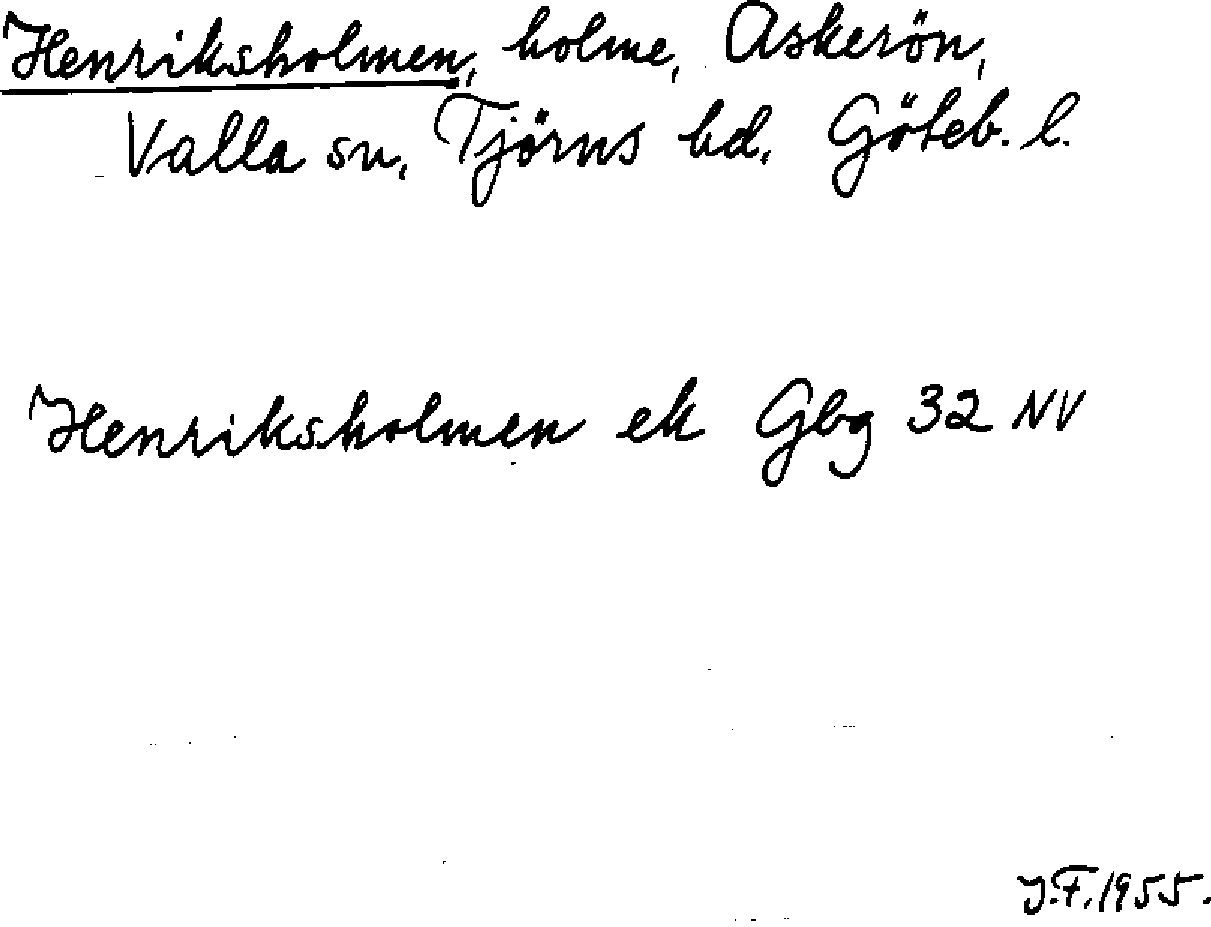 Henriksholmen, holme, Askerön,
Valla sn, Tjörns hd. Göteb. l.
Henriksholmen ek Gbg 32 NV
J.F. 1955.